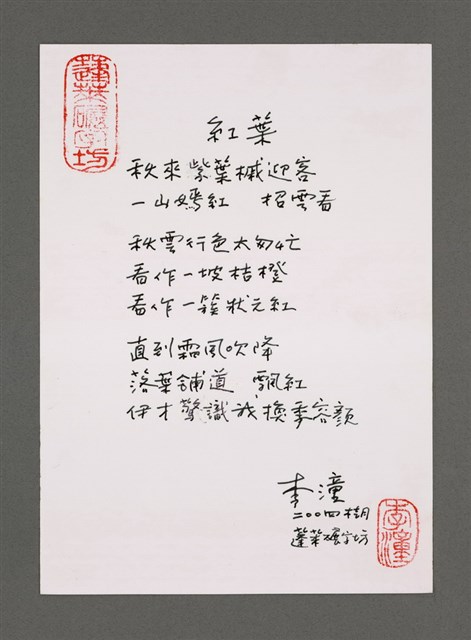 蓬萊碾字坊
紅葉
秋來紫葉槭迎客
一山嫣紅　招雲看
秋雲行色太匆忙
看作一坡桔橙
看作一簇狀元紅
直到霜風吹降
落葉舖道　飄紅
伊才驚識我換季容顏
李潼
二〇〇四
蓬萊碾字坊
李潼